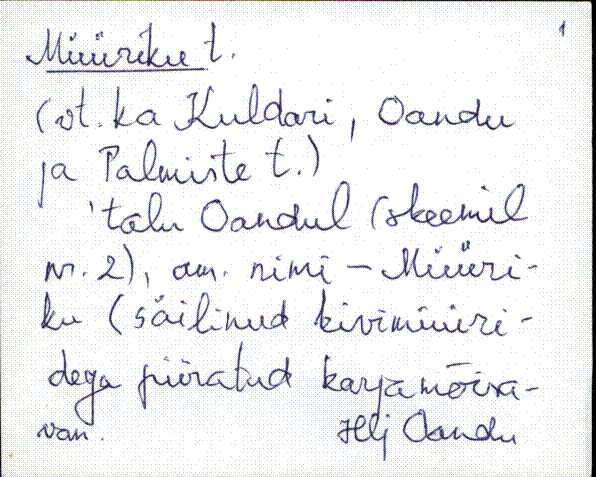 1
Müüriku t.
(vt. ka Kuldari, Oandu
ja Palmiste t.)
'talu Oandul (skeemil
nr. 2), am. nimi – Müüri-
ku (säilinud kivimüüri-
dega piiratud karjamõisa-
van.
Hlj Oandu